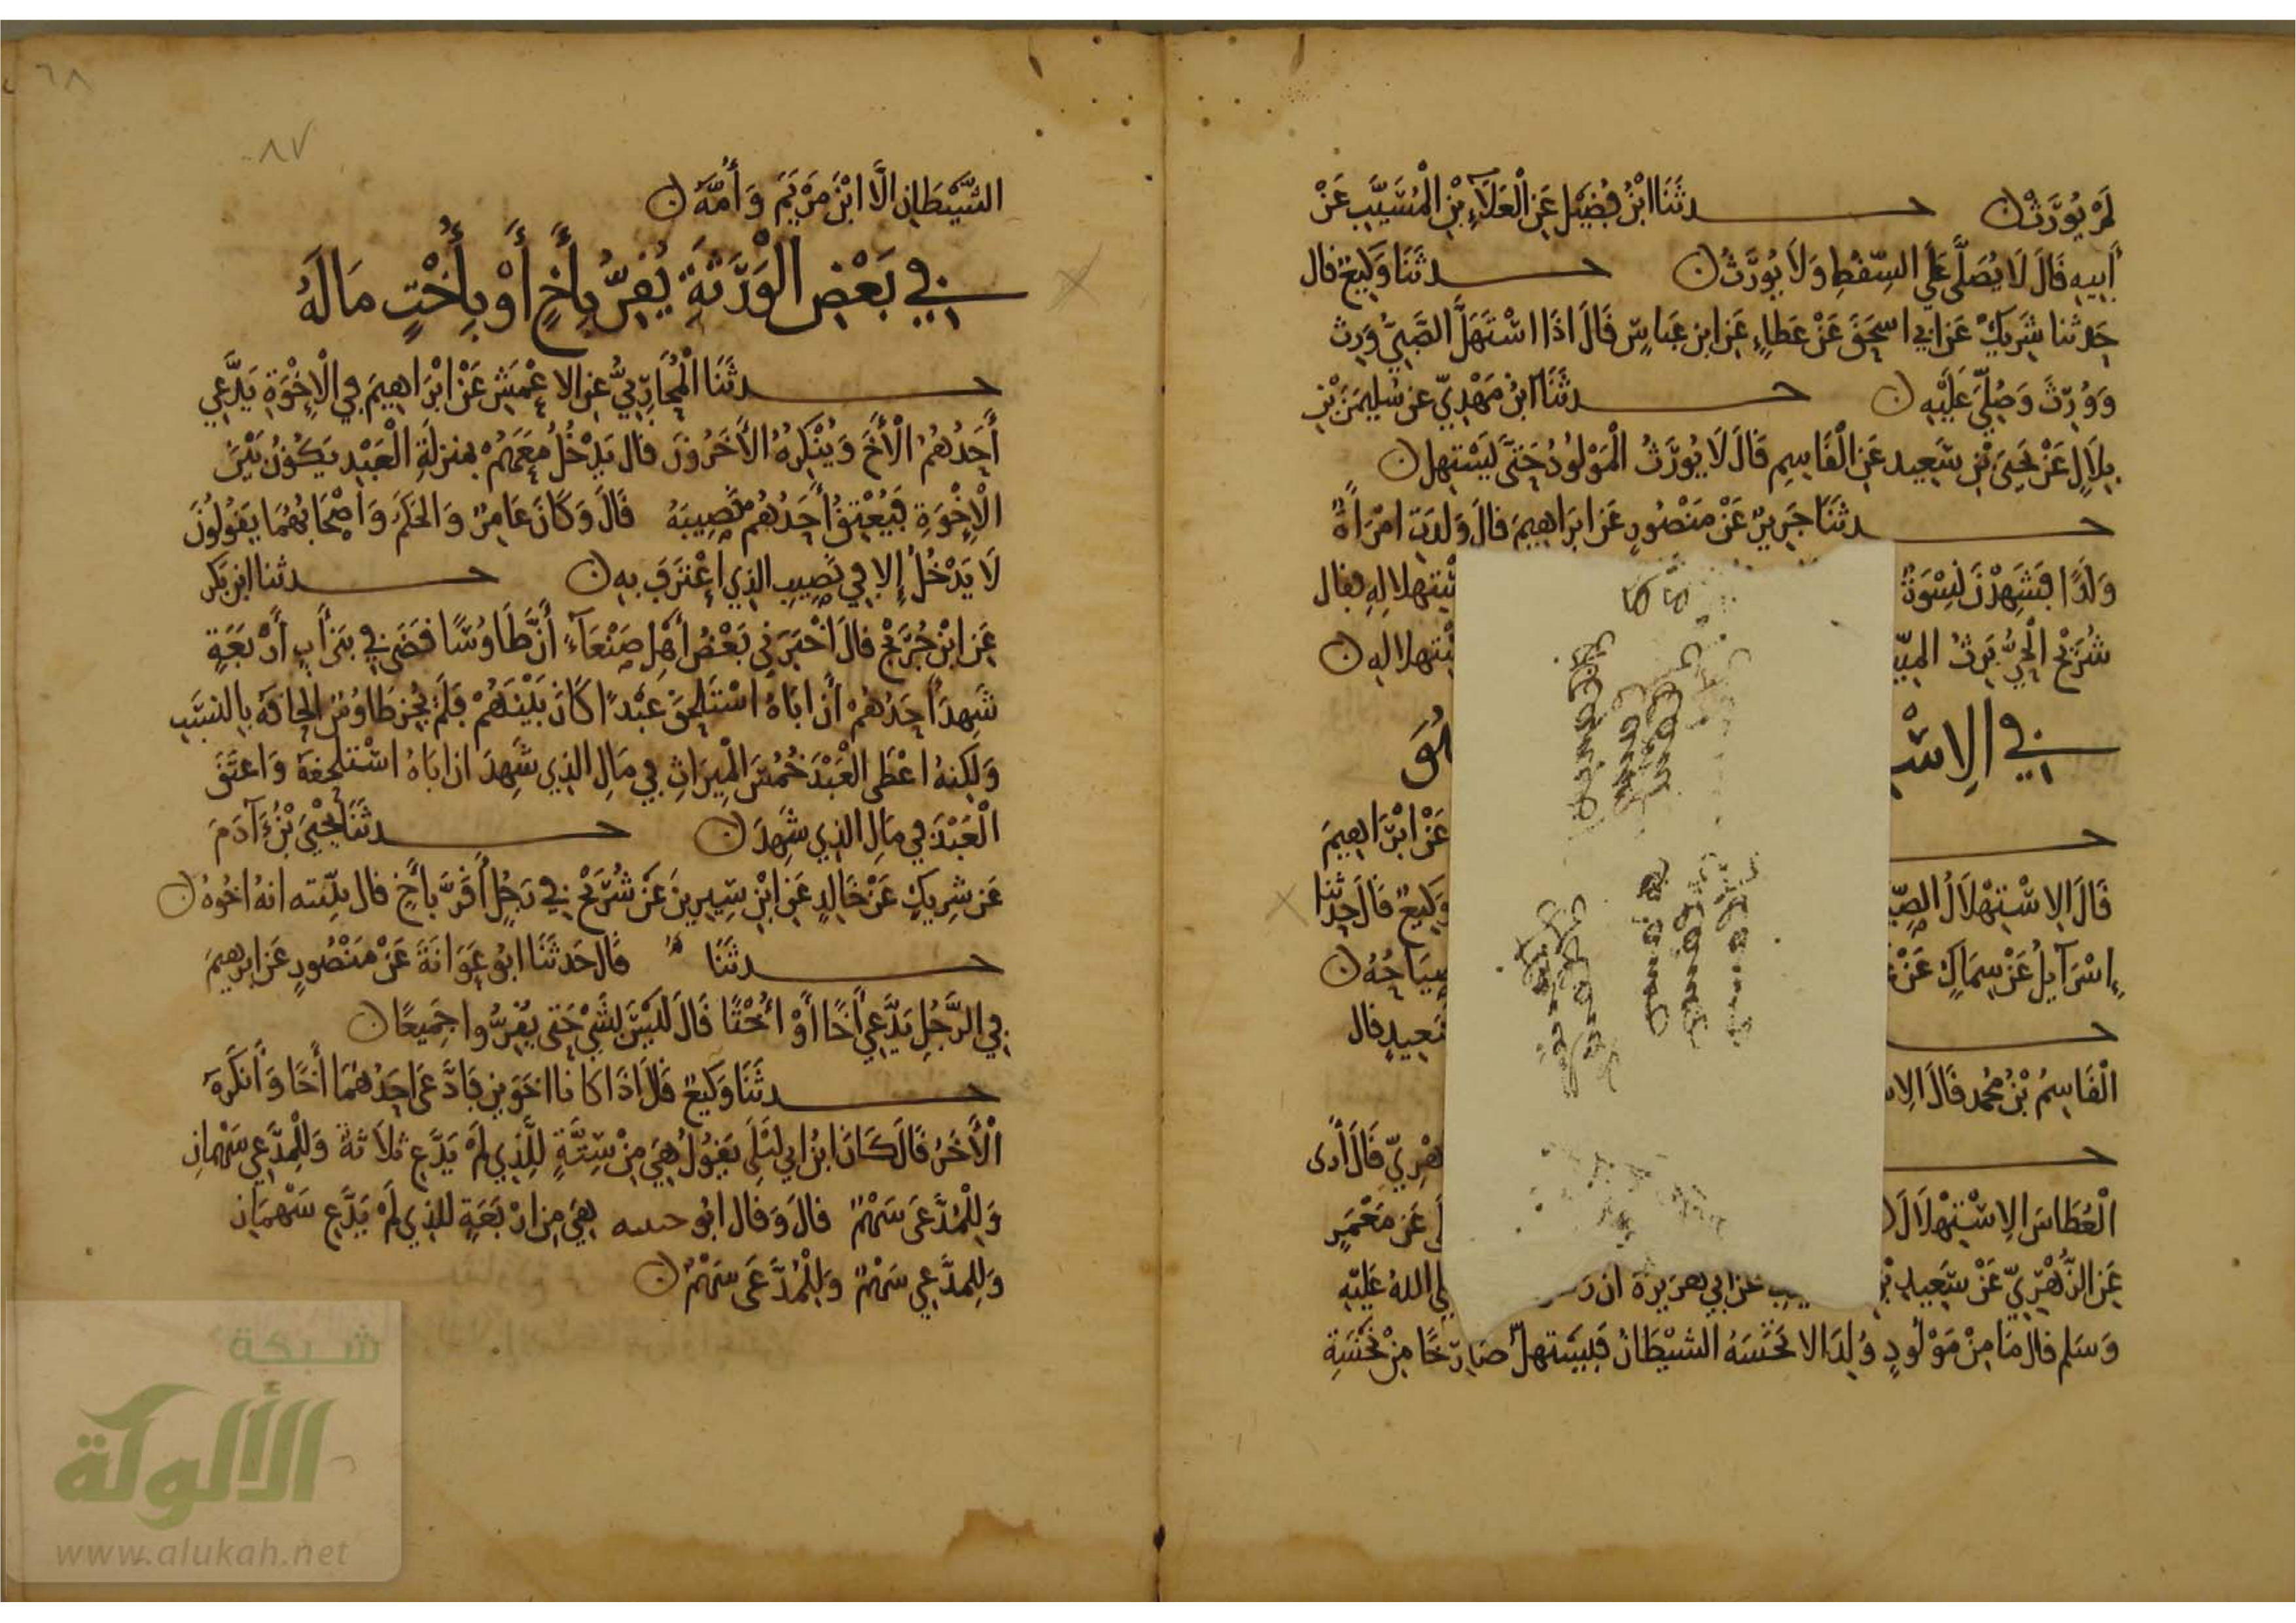 لَمْ يُوَرَّثْ ۞ حـدثَنَا ابْنُ فُضَيْلٍ عَنِ الْعَلَاءِ بْنِ الْمُسَيَّبِ عَنْ
أَبِيهِ قَالَ لَا يُصَلَّى عَلَى السِّقْطِ وَلَا يُوَرَّثُ ۞ حـدثَنَا وَكِيعٌ قال
حَدثنا شَرِيكٌ عَن ابي اسحَقَ عَنْ عَطاءٍ عَنِ ابنِ عَبَّاسٍ قَالَ اذَا اسْتَهَلَّ الصَّبِيُّ وَرِثَ
وَوُرِّثَ وَصُلِّيَ عَلَيْهِ ۞ حـدثَنَا ابنُ مَهْدِيٍّ عن سُلَيمَنَ بْنِ
بِلَالٍ عَنْ يَحْيَى بْنِ سَعِيد عَنِ الْقَاسِمِ قَالَ لَا يُوَرَّثُ الْمَوْلُودُ حَتَّى يَسْتَهِلَ ۞
حـدثَنَا جَرِيرٌ عَنْ مَنْصُورٍ عَن ابرَاهِيمَ قالَ وَلَدَتِ امْرَأَةٌ
وَلَدًا فَشَهِدْنَ نِسْوَةٌ ستهلاله فقال
شُرَيْح الْحَيُّ يَرِثُ الميّ ستهلاله ۞
في الِاسْ
عَنْ ابْرَاهِيمَ
قَالَ الِاسْتِهْلَالُ الصِّيَ وَكِيعٌ قَالَ حدثنا
إِسْرَآيِلُ عَنْ سِمَاكٍ عَنْ صِيَاحُهُ ۞
سَعِيدٍ قال
الْقَاسِمُ بْنُ مُحمد قَالَ الِاس
هْرِيِّ قَالَ أرى
الْعُطَاسَ الِاسْتِهْلَالَ عَن مَعْمَرٍ
عَنِ الزُّهْرِيِّ عَنْ سَعِيدِ عَن ابي هريرة ان رَس لى اللهُ عَلَيْهِ
وَسَلم قال مَا مِنْ مَوْلُودٍ وُلِدَ الا نَخَسَهُ الشَيْطَانُ فَيَسْتَهلّ صَارِخًا مِنْ نَخْسَةِ
٦٨
٨٧
الشَّيْطَانِ الَّا ابْنَ مَرْيَمَ وَأُمَّهُ ۞
في بَعْضِ الْوَرَثَةِ يُقِرُّ بِأَخٍ أَوْ بِأُخْتٍ مَا لَهُ
حـدثَنَا الْمُحَارِبيُّ عن الاعْمَشِ عَنْ ابْرَاهِيمَ في الْإِخْوَةِ يَدَّعِي
أَحَدُهُمُ الْأَخَ وَيُنْكِرُهُ الْآخَرُونَ قال يَدْخُلُ مَعَهُمْ بمنزلَةِ الْعَبْدِ يَكُونُ بَيْنَ
الْإِخْوَةِ فَيُعْتِقُ أَحَدُهُم نَصِيبَهُ قَالَ وَكَانَ عَامِرٌ وَالحَكَمُ وَأَصْحَابُهُمَا يَقُولُونَ
لَا يَدْخُلُ إِلا في نَصِيبِ الذي اعْتَرَفَ بِهِ ۞ حـدثنا ابن بَكر
عَنِ ابْنِ جُرَيْجٍ قالَ اخْبَرَنِي بَعْضُ أَهْلِ صَنْعَآءَ أَنَّ طَاوُسًا قَضَى في بَنِي أَبٍ أَرْبَعَةٍ
شَهِدَ أَحَدُهُمْ أَنَّ ابَاهُ اسْتَلْحَقَ عَبْدًا كَانَ بَيْنَهُمْ فَلَمْ يُجِزْ طَاوُسٌ الحَاقَهُ بِالنسَبِ
وَلَكِنهُ اعْطَى الْعَبْدَ خُمُسَ الْمِيرَاثِ في مَالِ الذِي شَهِدَ ان ابَاهُ اسْتَلْحَقَهُ وَاعتَقَ
الْعَبْدَ في مَالِ الذي شَهِدَ ۞ حـدثَنَا يَحْيَى بْنُ آدَمَ
عَن شَرِيكٍ عَنْ خَالِدٍ عَنِ ابْنِ سِيرِينَ عَنْ شُرَيْحٍ في رَجُلٍ أَقَرَّ بأَخٍ قال بيّنته انهُ اخُوهُ ۞
حـدثَنَا قَالَ حَدثَنَا ابُو عَوَانَةَ عَنْ مَنْصُورٍ عَن ابرهِيمَ
في الرَّجُلِ يَدَّعِي أَخًا أَوْ أُخْتًا قَالَ لَيْسَ بِشَيْءٍ حَتى يُقِرُّوا جَمِيعًا ۞
حـدثَنَا وَكِيعٌ قَالَ اذَا كَانَا اخَوَينِ فَادَّعَى احَدُهُمَا أَخًا وَأَنْكَرَهُ
الْآخَرُ قَالَ كَانَ ابنُ ابي لَيْلَى يَقُولُ هِيَ مِنْ سِتَّةٍ لِلَّذِي لَمْ يَدَّعِ ثَلَاثَةٌ وَلِلْمُدَّعِي سَهْمانِ
وَلِلْمُدَّعَى سَهْمٌ قالَ وَقال ابُو حنيفه هِيَ مِن ارْبَعَةٍ للذي لَمْ يَدَّعِ سَهْمَانِ
وَلِلمدَّعِي سَهْمٌ وَلِلْمُدَّعَى سَهْمٌ ۞
شبكة
الألوكة
www.alukah.net